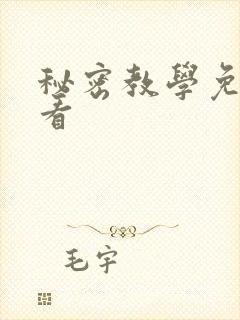 秘密教學免
看
毛宇